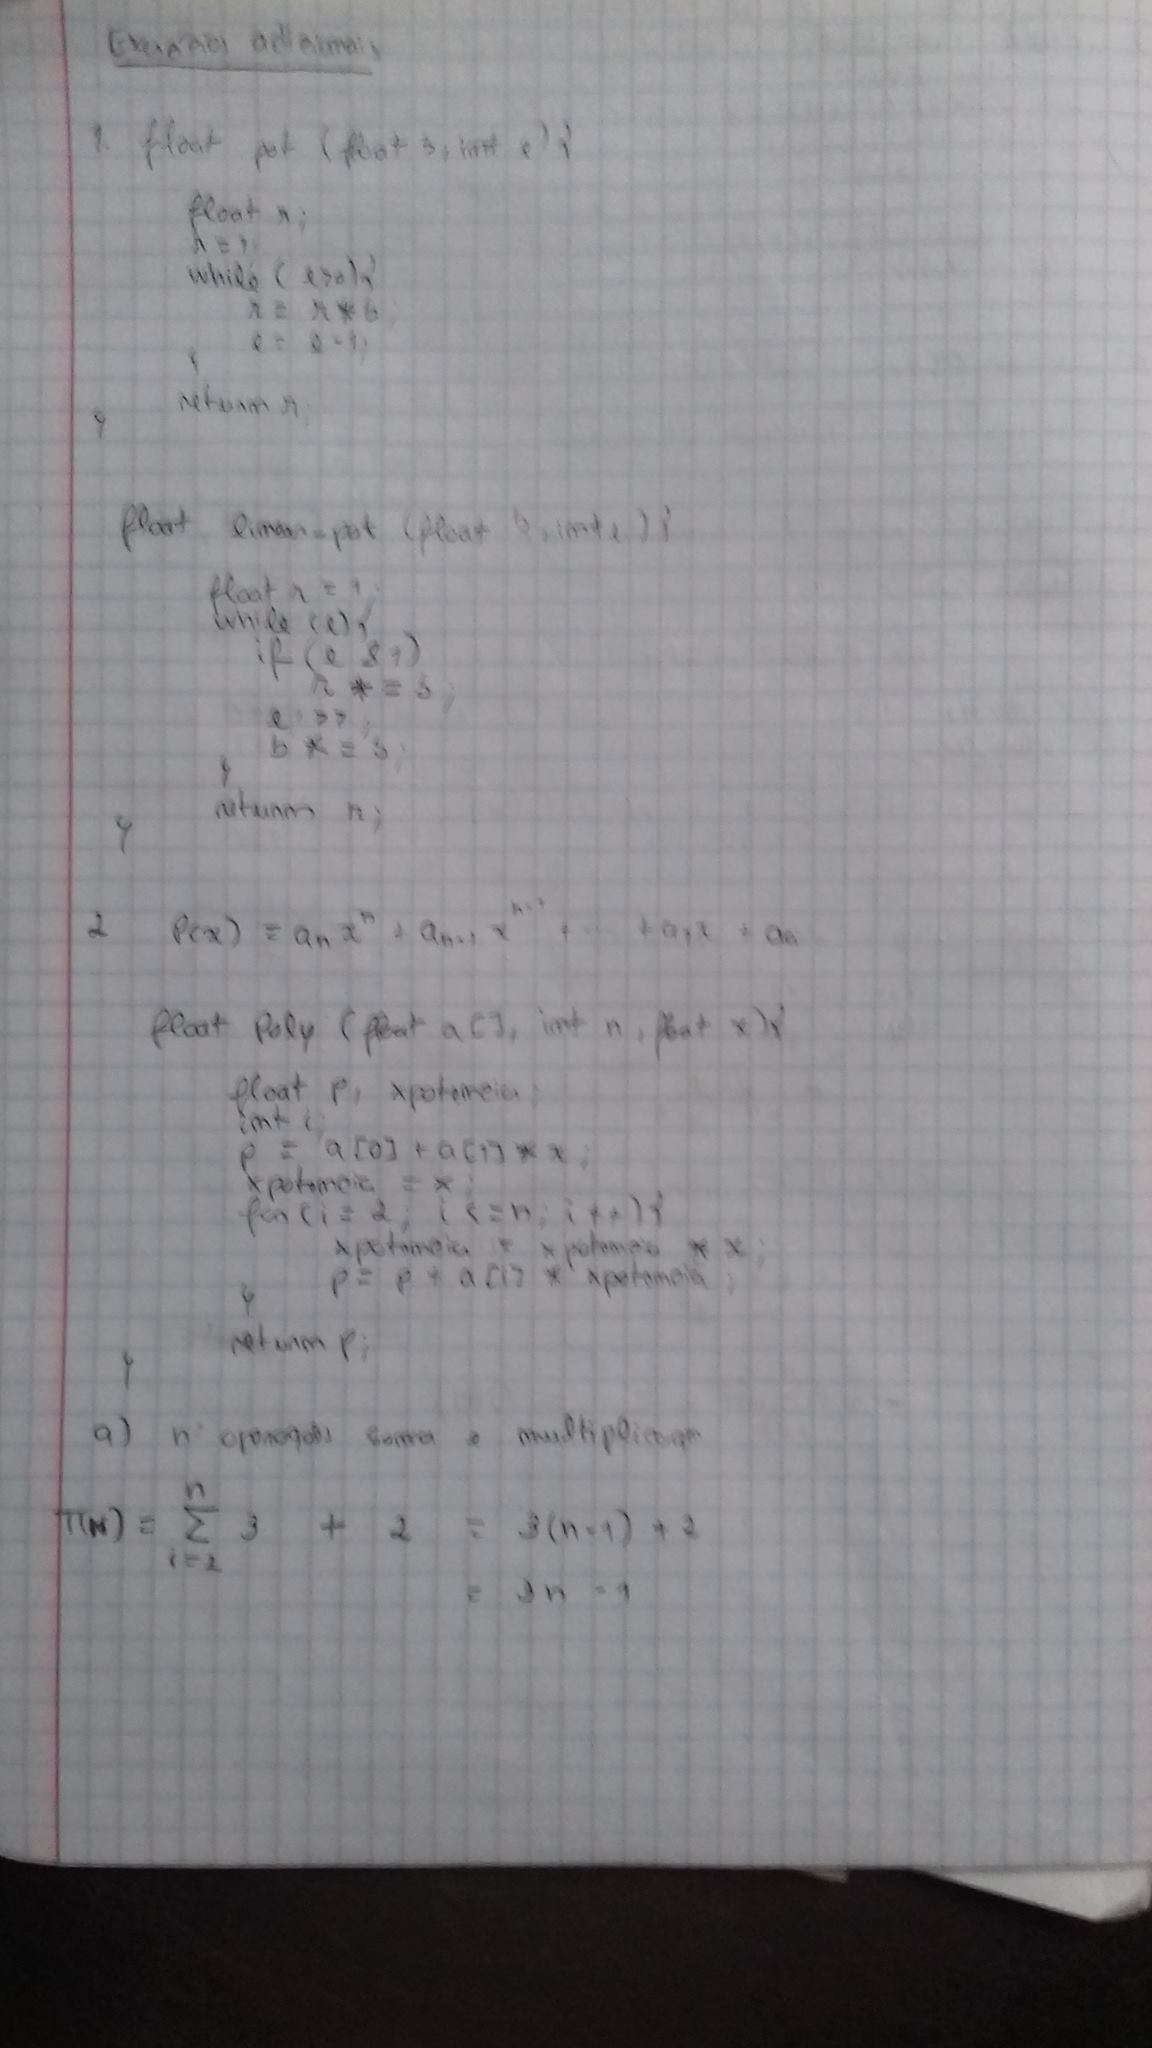 Exercícios adicionais
1. float pot (float b, int e){
float r;
r = 1;
while (e>0){
r = r * b;
e = e-1;
}
return r;
}
float linear-pot (float b, int e){
float r = 1;
while (e){
if (e & 1)
r *= b;
e >>;
b *= b;
}
return r;
}
2 P(x) = aₙ xⁿ + aₙ₋₁ xⁿ⁻¹ + ... + a₁x + a₀
float Poly (float a[], int n, float x){
float p, xpotencia;
int i;
p = a[0] + a[1] * x;
xpotencia = x;
for(i = 2; i <= n; i++){
xpotencia = xpotencia * x;
p = p + a[i] * xpotencia;
}
return p;
}
a) nº operações soma e multiplicação
T(N) = n Σ i=2 3 + 2 = 3(n-1) + 2
= 3n - 1